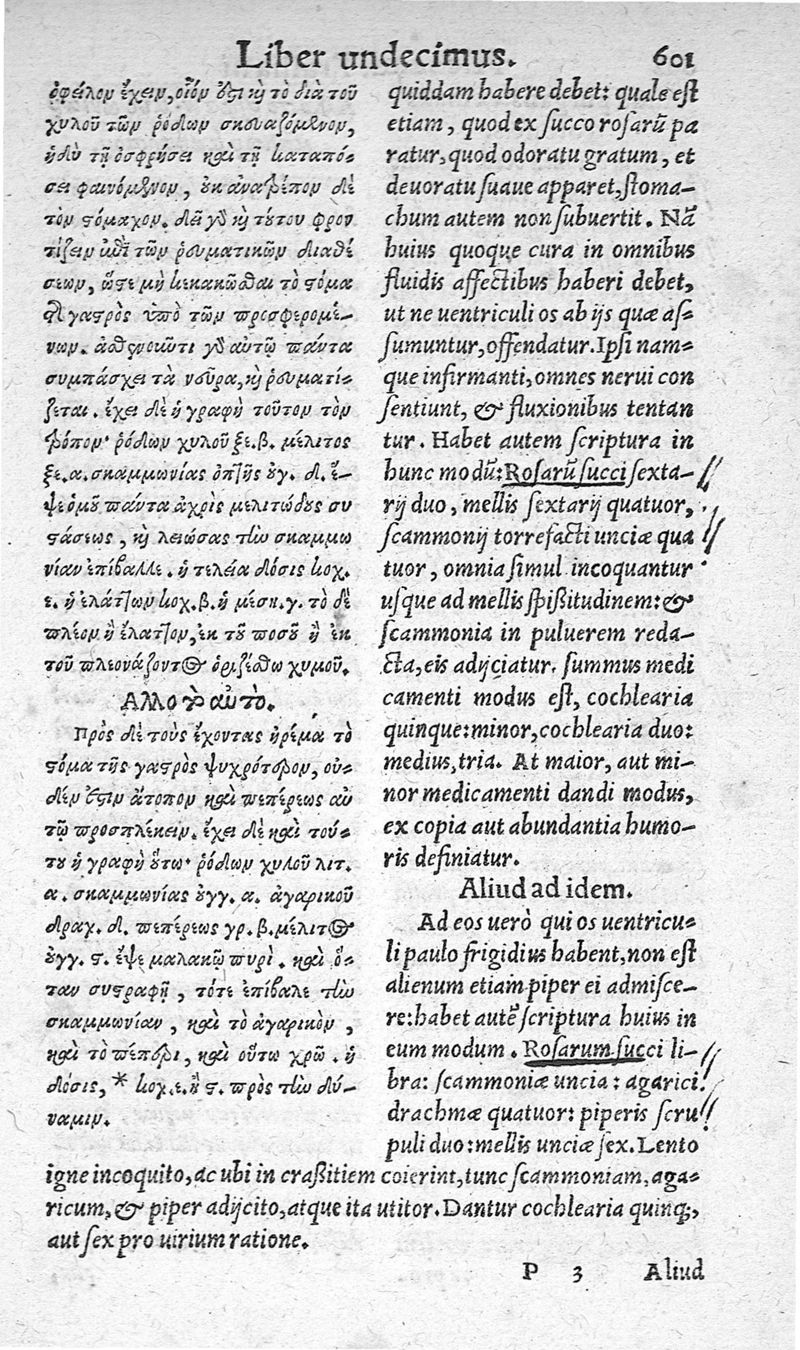 Liber undecimus. 601
ὀφείλον ἔχειν, οἷόν ὅτι καὶ τὸ διὰ τοῦ
χυλοῦ τῶν ῥόδων σκευαζόμενον,
ἡδὺ τῇ ὀσφρήσει καὶ τῇ καταπό-
σει φαινόμενον, οὐκ ἀνατρέπον δὲ
τὸν στόμαχον. δεῖ γὰρ καὶ τούτου φρον
τίζειν ἐπὶ τῶν ῥευματικῶν διαθέ
σεων, ὥστε μὴ κεκακῶσθαι τὸ στόμα
τῆς γαστρὸς ὑπὸ τῶν προσφερομέ-
νων. ἀσθενοῦντι γὰρ αὐτῷ πάντα
συμπάσχει τὰ νεῦρα, καὶ ῥευματί-
ζεται. ἔχει δὲ ἡ γραφὴ τοῦτον τὸν
τρόπον· ῥόδων χυλοῦ ξε. β. μέλιτος
ξε. α. σκαμμωνίας ὀπτῆς ουγ. δ. ἕ-
ψε ὁμοῦ πάντα ἄχρις μελιτώδους συ
στάσεως, καὶ λειώσας τὴν σκαμμω
νίαν ἐπίβαλλε. ἡ τελεία δόσις κοχ.
ε. ἡ ἐλάττων κοχ. β. ἡ μέση. γ. τὸ δὲ
πλέον ἢ ἔλαττον, ἐκ τοῦ ποσοῦ ἢ ἐκ
τοῦ πλεονάζοντος ὁριζέσθω χυμοῦ.
Αλλο πρὸς αὐτό.
Πρὸς δὲ τοὺς ἔχοντας ἠρέμα τὸ
στόμα τῆς γαστρὸς ψυχρότερον, οὐ-
δέν ἐστιν ἄτοπον καὶ πεπέρεως αὐ
τῷ προσπλέκειν. ἔχει δὲ καὶ τού-
του ἡ γραφὴ οὕτω· ῥόδων χυλοῦ λιτ.
α. σκαμμωνίας ουγγ. α. ἀγαρικοῦ
δραχ. δ. πεπέρεως γρ. β. μέλιτος
ουγγ. ϛ. ἕψε μαλακῷ πυρὶ. καὶ ὅ-
ταν συστραφῇ, τότε ἐπίβαλε τὴν
σκαμμωνίαν, καὶ τὸ ἀγαρικὸν,
καὶ τὸ πέπερι, καὶ οὕτω χρῶ. ἡ
δόσις, * κοχ. ε. ἢ ϛ. πρὸς τὴν δύ-
ναμιν.
quiddam habere debet: quale est
etiam, quod ex succo rosarũ pa
ratur, quod odoratu gratum, et
deuoratu suaue apparet, stoma-
chum autem non subuertit. Nã
huius quoque cura in omnibus
fluidis affectibus haberi debet,
ut ne uentriculi os ab ijs quæ as-
sumuntur, offendatur. Ipsi nam-
que infirmanti, omnes nerui con
sentiunt, & fluxionibus tentan
tur. Habet autem scriptura in
hunc modũ: Rosarũ succi sexta-
rij duo, mellis sextarij quatuor,
scammonij torrefacti unciæ qua
tuor, omnia simul incoquantur
usque ad mellis spißitudinem: &
scammonia in puluerem reda-
cta, eis adijciatur. summus medi
camenti modus est, cochlearia
quinque: minor, cochlearia duo:
medius, tria. At maior, aut mi-
nor medicamenti dandi modus,
ex copia aut abundantia humo-
ris definiatur.
Aliud ad idem.
Ad eos uerò qui os uentricu-
li paulo frigidius habent, non est
alienum etiam piper ei admisce-
re: habet autẽ scriptura huius in
eum modum. Rosarum succi li-
bra: scammoniæ uncia: agarici
drachmæ quatuor: piperis scru
puli duo: mellis unciæ sex. Lento
igne incoquito, ac ubi in craßitiem coierint, tunc scammoniam, aga-
ricum, & piper adijcito, atque ita utitor. Dantur cochlearia quinq;,
aut sex pro uirium ratione.
P 3 Aliud